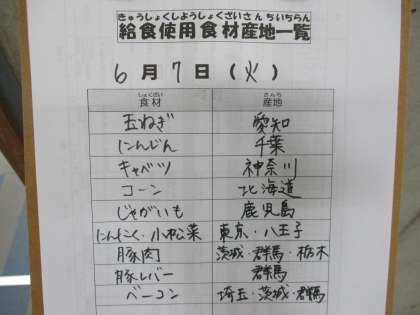 きゅうしょくしようしょくざいさんちいちらん
給食使用食材産地一覧
6月7日(火)
しょくざい さんち
食材 産地
玉ねぎ 愛知
にんじん 千葉
キャベツ 神奈川
コーン 北海道
じゃがいも 鹿児島
にんにく・小松菜 東京・八王子
豚肉 茨城・群馬・栃木
豚レバー 群馬
ベーコン 埼玉・茨城・群馬